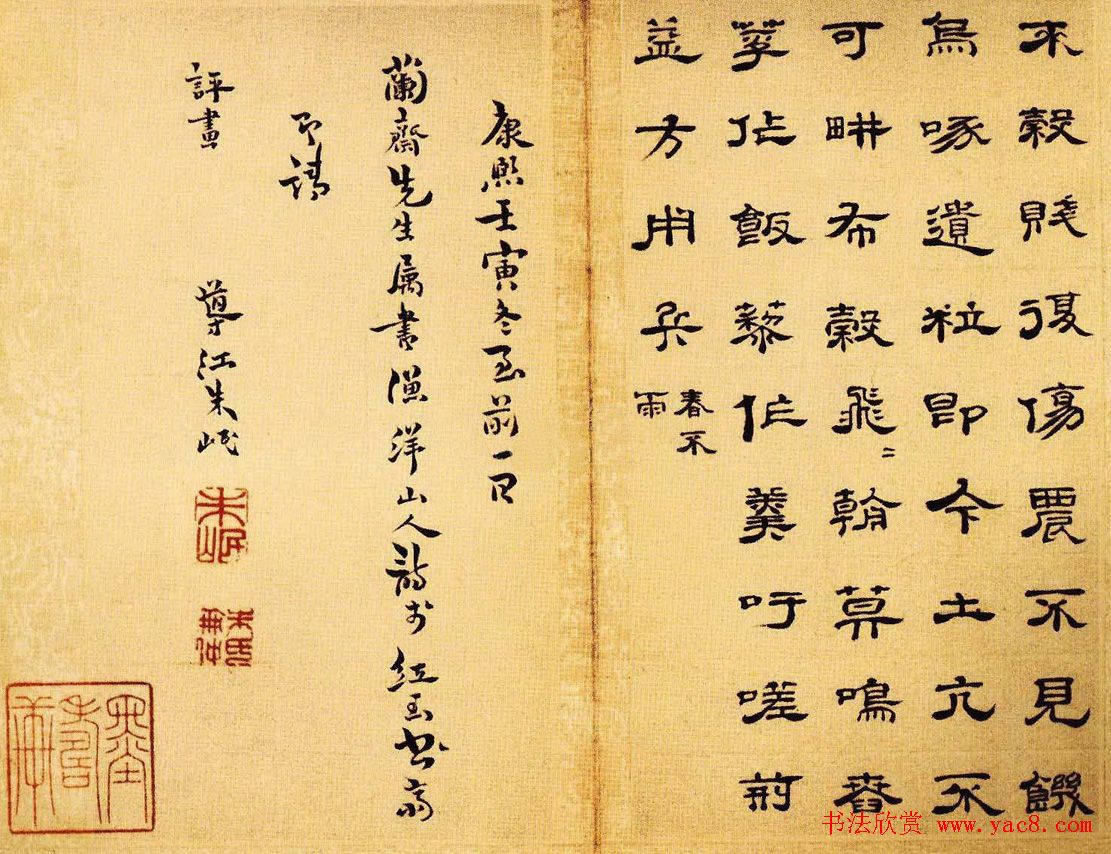 來穀賤復傷農不見饑
烏啄遺粒即今土亢不
可畊布穀飛〻鞘莫鳴舂
莩作飯藜作羹吁嗟荊
益方用兵 春不
雨
康熙壬寅冬至前一日
蘭齋先生属書漁洋山人詩於紅玉書齋
即請
評畫 導江朱岷
朱岷
書法欣赏 www.yac8.com